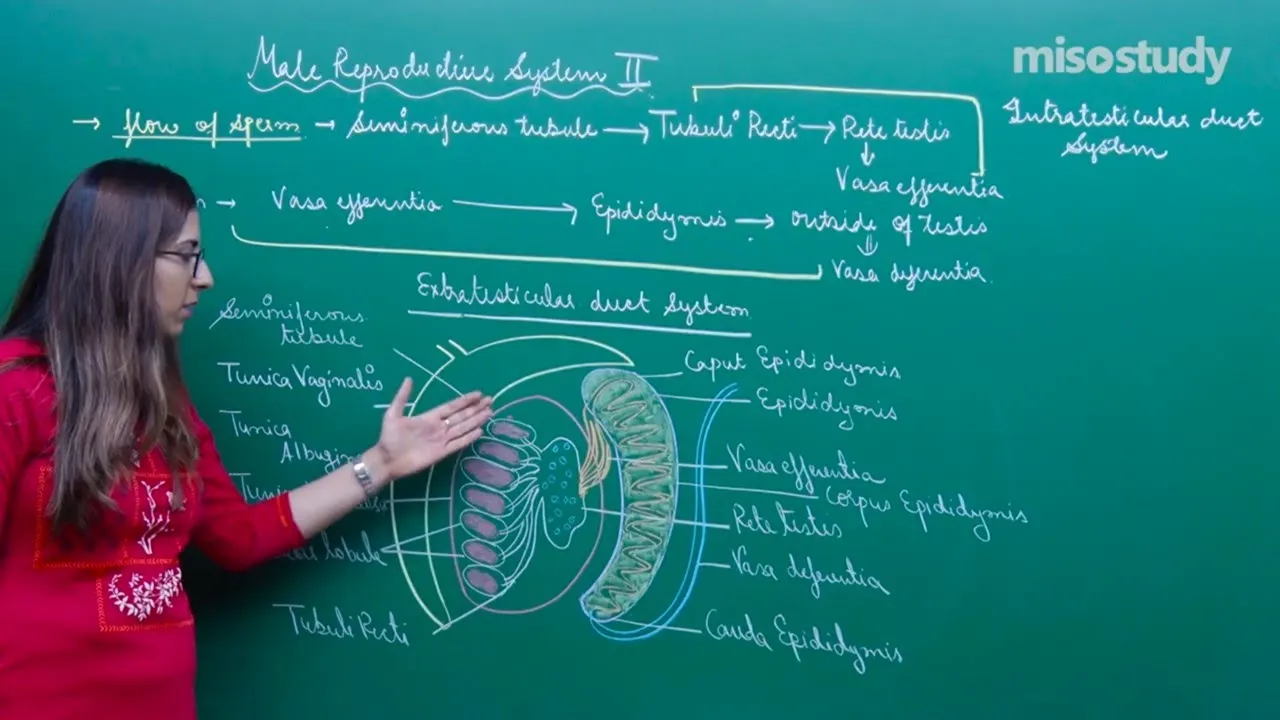 misostudy
Male Reproductive System II
→ flow of sperm → Seminiferous tubule → Tubuli Recti → Rete testis
↓
Vasa efferentia
Intratesticular duct
System
→ Vasa efferentia → Epididymis → outside of Testis
⇓
Vasa deferentia
Extratesticular duct System
Seminiferous
tubule
Tunica Vaginalis
Tunica
lobule
Tubuli Recti
Caput Epididymis
Epididymis
Vasa efferentia
Corpus Epididymis
Rete testis
Vasa deferentia
Cauda Epididymis